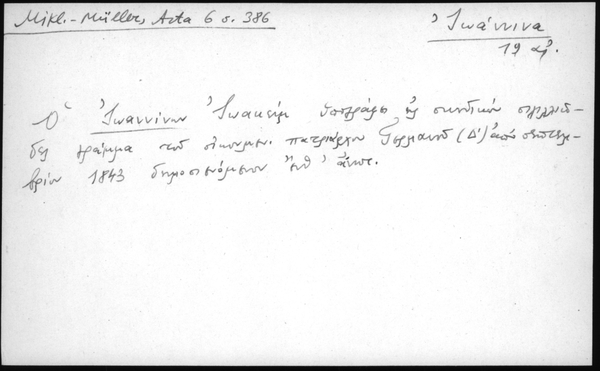 Mikl.-Müller, Acta 6 σ. 386
Ἰωάννινα
19 αἰ.
Ὁ Ἰωαννίνων Ἰωακείμ ὑπογράφει εἰς συνοδικόν σιγιλλιῶ-
δες γράμμα τοῦ οἰκουμεν. πατριάρχου Γερμανοῦ (Δ') ἀπό σεπτεμ-
βρίου 1843 δημοσιευόμενον ἔνθ' ἄνωτ.